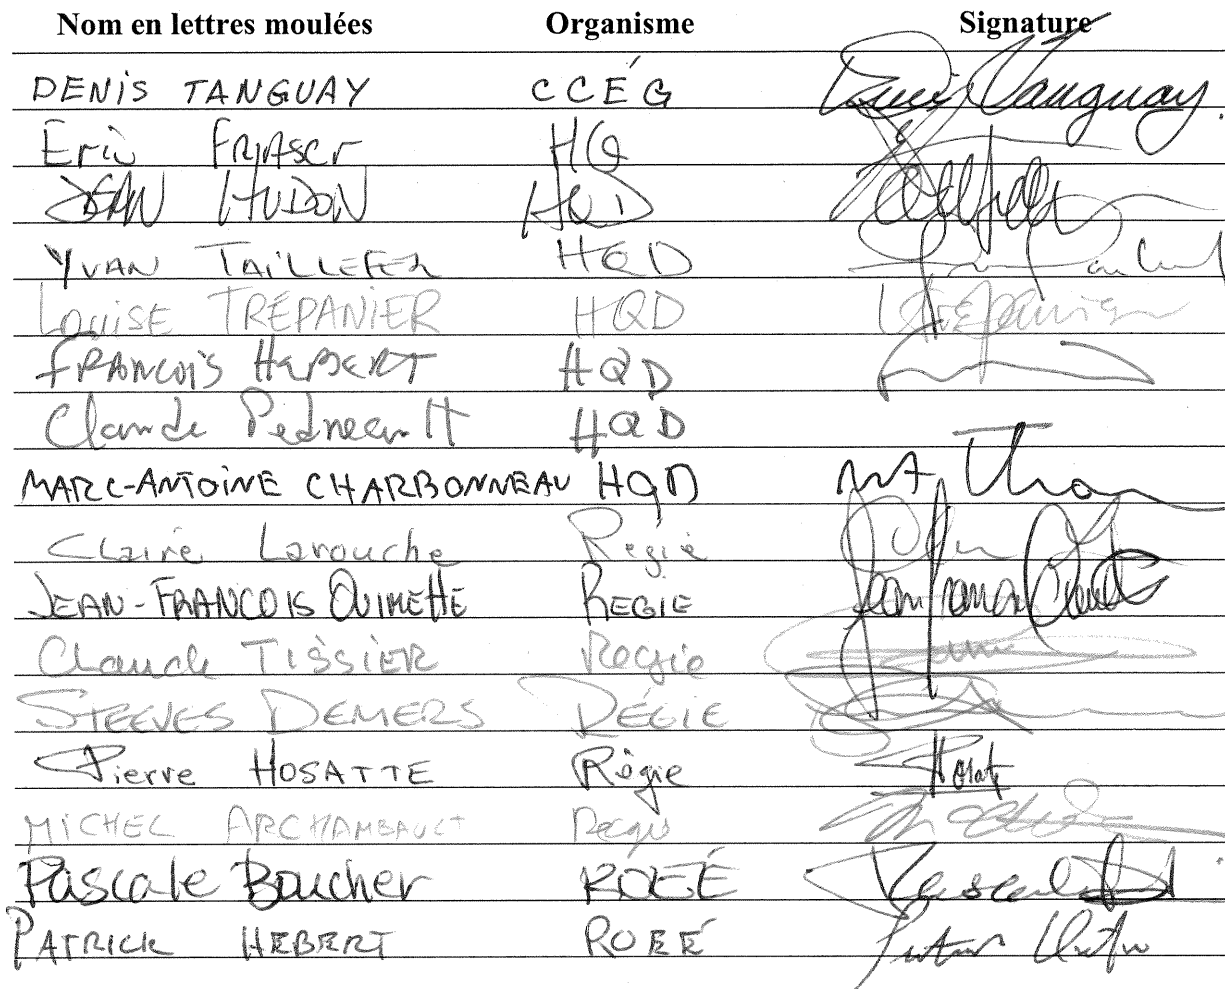 Nom en lettres moulées Organisme Signature
DENIS TANGUAY CCÉG Denis Tanguay.
Eric FRASER HQ
JEAN HUDON HQD
YVAN TAILLEFER HQD
LOUISE TRÉPANIER HQD LTrépanier
FRANÇOIS HÉBERT HQD
Claude Pedneault HQD
MARC-ANTOINE CHARBONNEAU HQD
Claire Larouche Régie
JEAN-FRANCOIS OUIMETTE REGIE
Claude TISSIER Régie
STEEVES DEMERS RÉGIE
Pierre HOSATTE Régie
MICHEL ARCHAMBAULT Régie
Pascale Boucher ROEÉ
PATRICK HEBERT ROEÉ